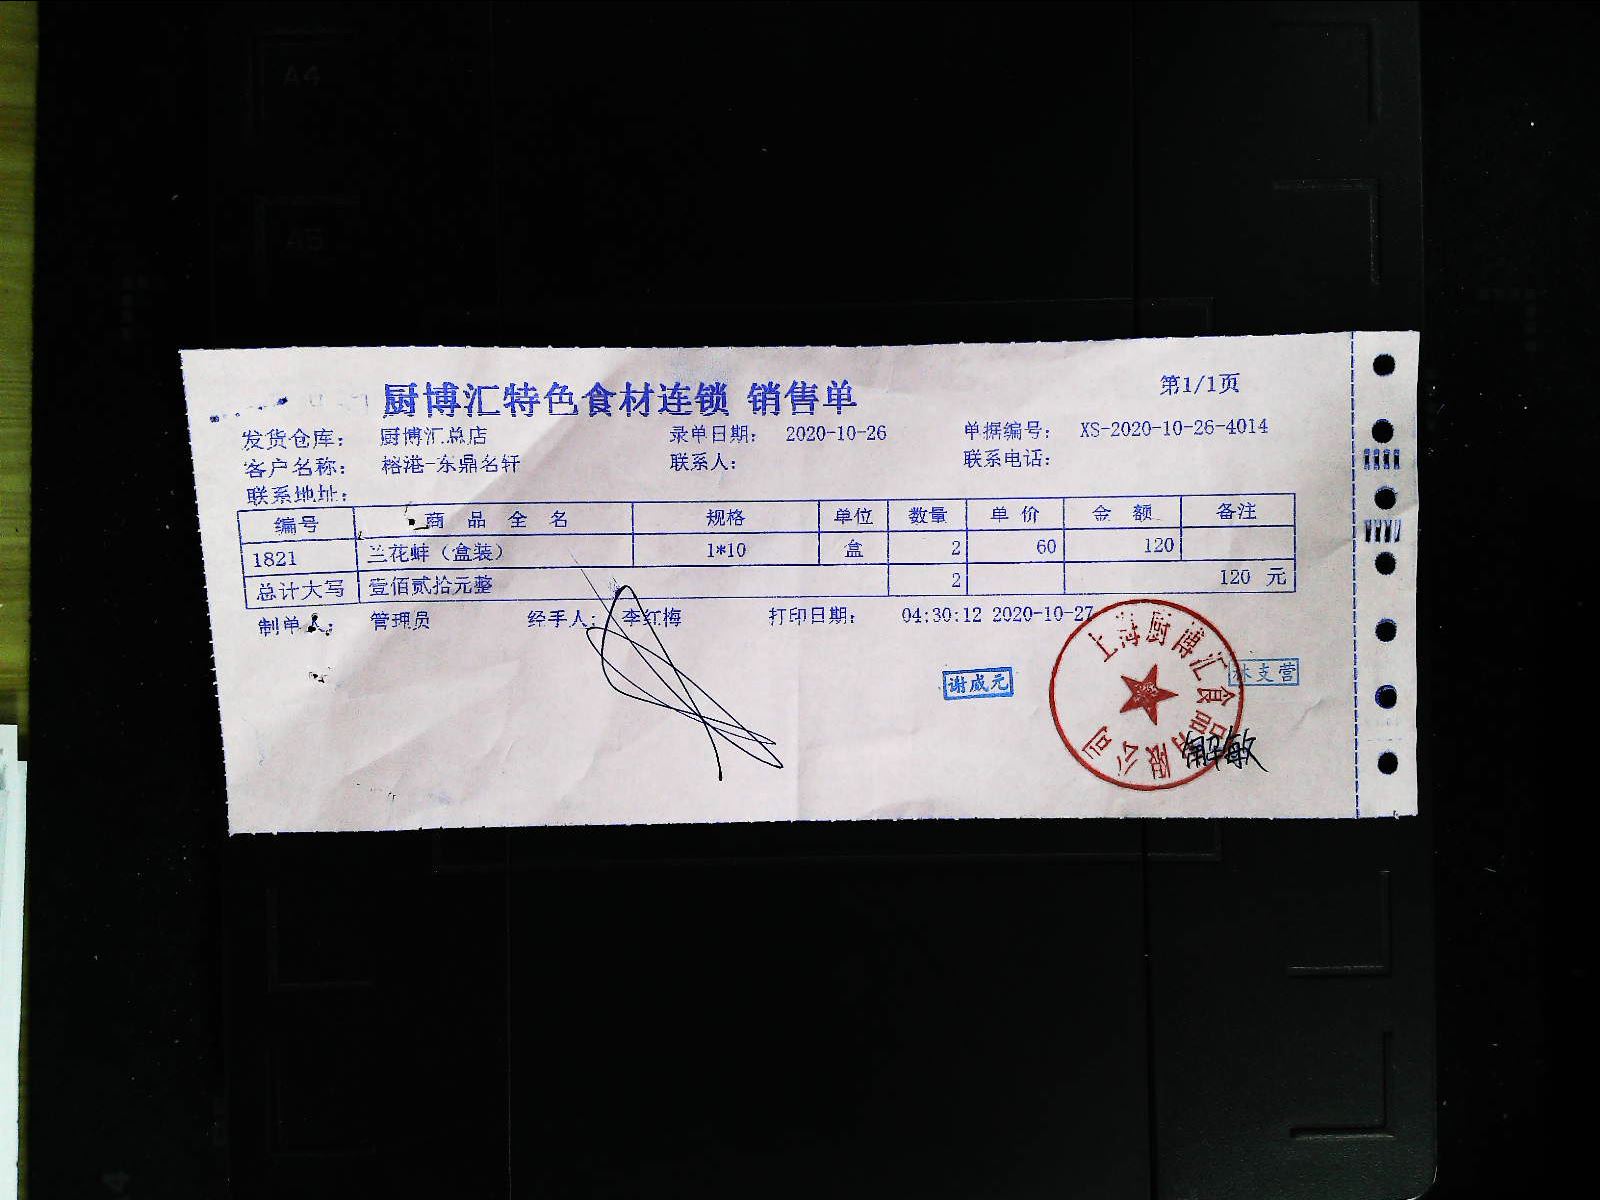 厨博汇特色食材连锁 销售单 第1/1页
发货仓库： 厨博汇总店 录单日期： 2020-10-26 单据编号： XS-2020-10-26-4014
客户名称： 榕港-东鼎名轩 联系人： 联系电话：
联系地址：
编号 商品全名 规格 单位 数量 单价 金额 备注
1821 兰花蚌（盒装） 1*10 盒 2 60 120
总计大写 壹佰贰拾元整 2 120 元
制单人： 管理员 经手人： 李红梅 打印日期： 04:30:12 2020-10-27
上海厨博汇食品有限公司
谢威元
林支营
解敏
A4
A5